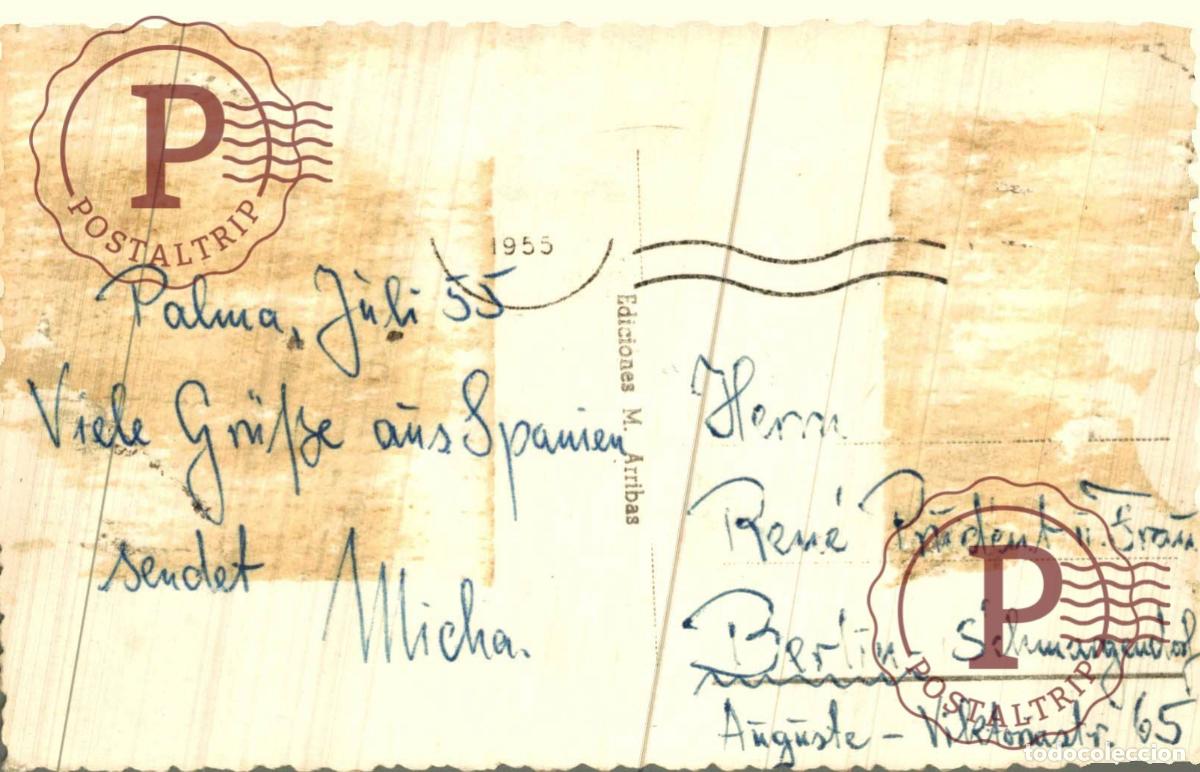 P
POSTALTRIP
1955
Palma, Juli 55
Viele Grüße aus Spanien
sendet Micha.
Ediciones M. Arribas
Herrn
René Prudent u. Frau
Berlin-Schmargendorf
Auguste-Viktoriastr. 65
P
POSTALTRIP
todocoleccion